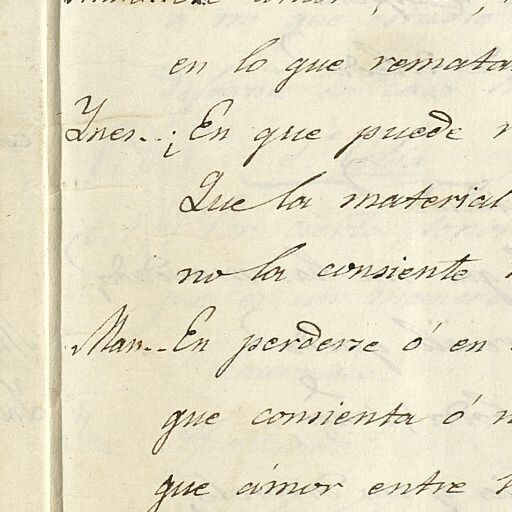 amor
en lo que remata
Ynes.. ¿En que puede
Que la material
no la consiente
Man.. En perderse ó en
que consienta ó n
que ámor entre